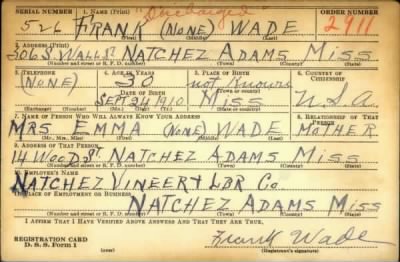 SERIAL NUMBER 1. NAME (Print) "Discharged" ORDER NUMBER
526 FRANK (NONE) WADE 2911
(First) (Middle) (Last)
2. ADDRESS (Print)
306 S. WALL ST NATCHEZ ADAMS MISS
(Number and street or R. F. D. number) (Town) (County) (State)
3. TELEPHONE 4. AGE IN YEARS 5. PLACE OF BIRTH 6. COUNTRY OF CITIZENSHIP
(NONE) 30 not known
DATE OF BIRTH
Sept 24 1910 Miss U.S.A.
(Exchange) (Number) (Mo.) (Day) (Yr.) (State or country)
7. NAME OF PERSON WHO WILL ALWAYS KNOW YOUR ADDRESS 8. RELATIONSHIP OF THAT PERSON
MRS EMMA (NONE) WADE MOTHER
(Mr., Mrs., Miss) (First) (Middle) (Last)
9. ADDRESS OF THAT PERSON
14 WOODS ST NATCHEZ ADAMS MISS
(Number and street or R. F. D. number) (Town) (County) (State)
10. EMPLOYER'S NAME
NATCHEZ VINEER & LBR Co.
11. PLACE OF EMPLOYMENT OR BUSINESS
NATCHEZ ADAMS MISS
(Number and street or R. F. D. number) (Town) (County) (State)
I AFFIRM THAT I HAVE VERIFIED ABOVE ANSWERS AND THAT THEY ARE TRUE.
REGISTRATION CARD
D. S. S. Form 1 Frank Wade
(Registrant's signature)